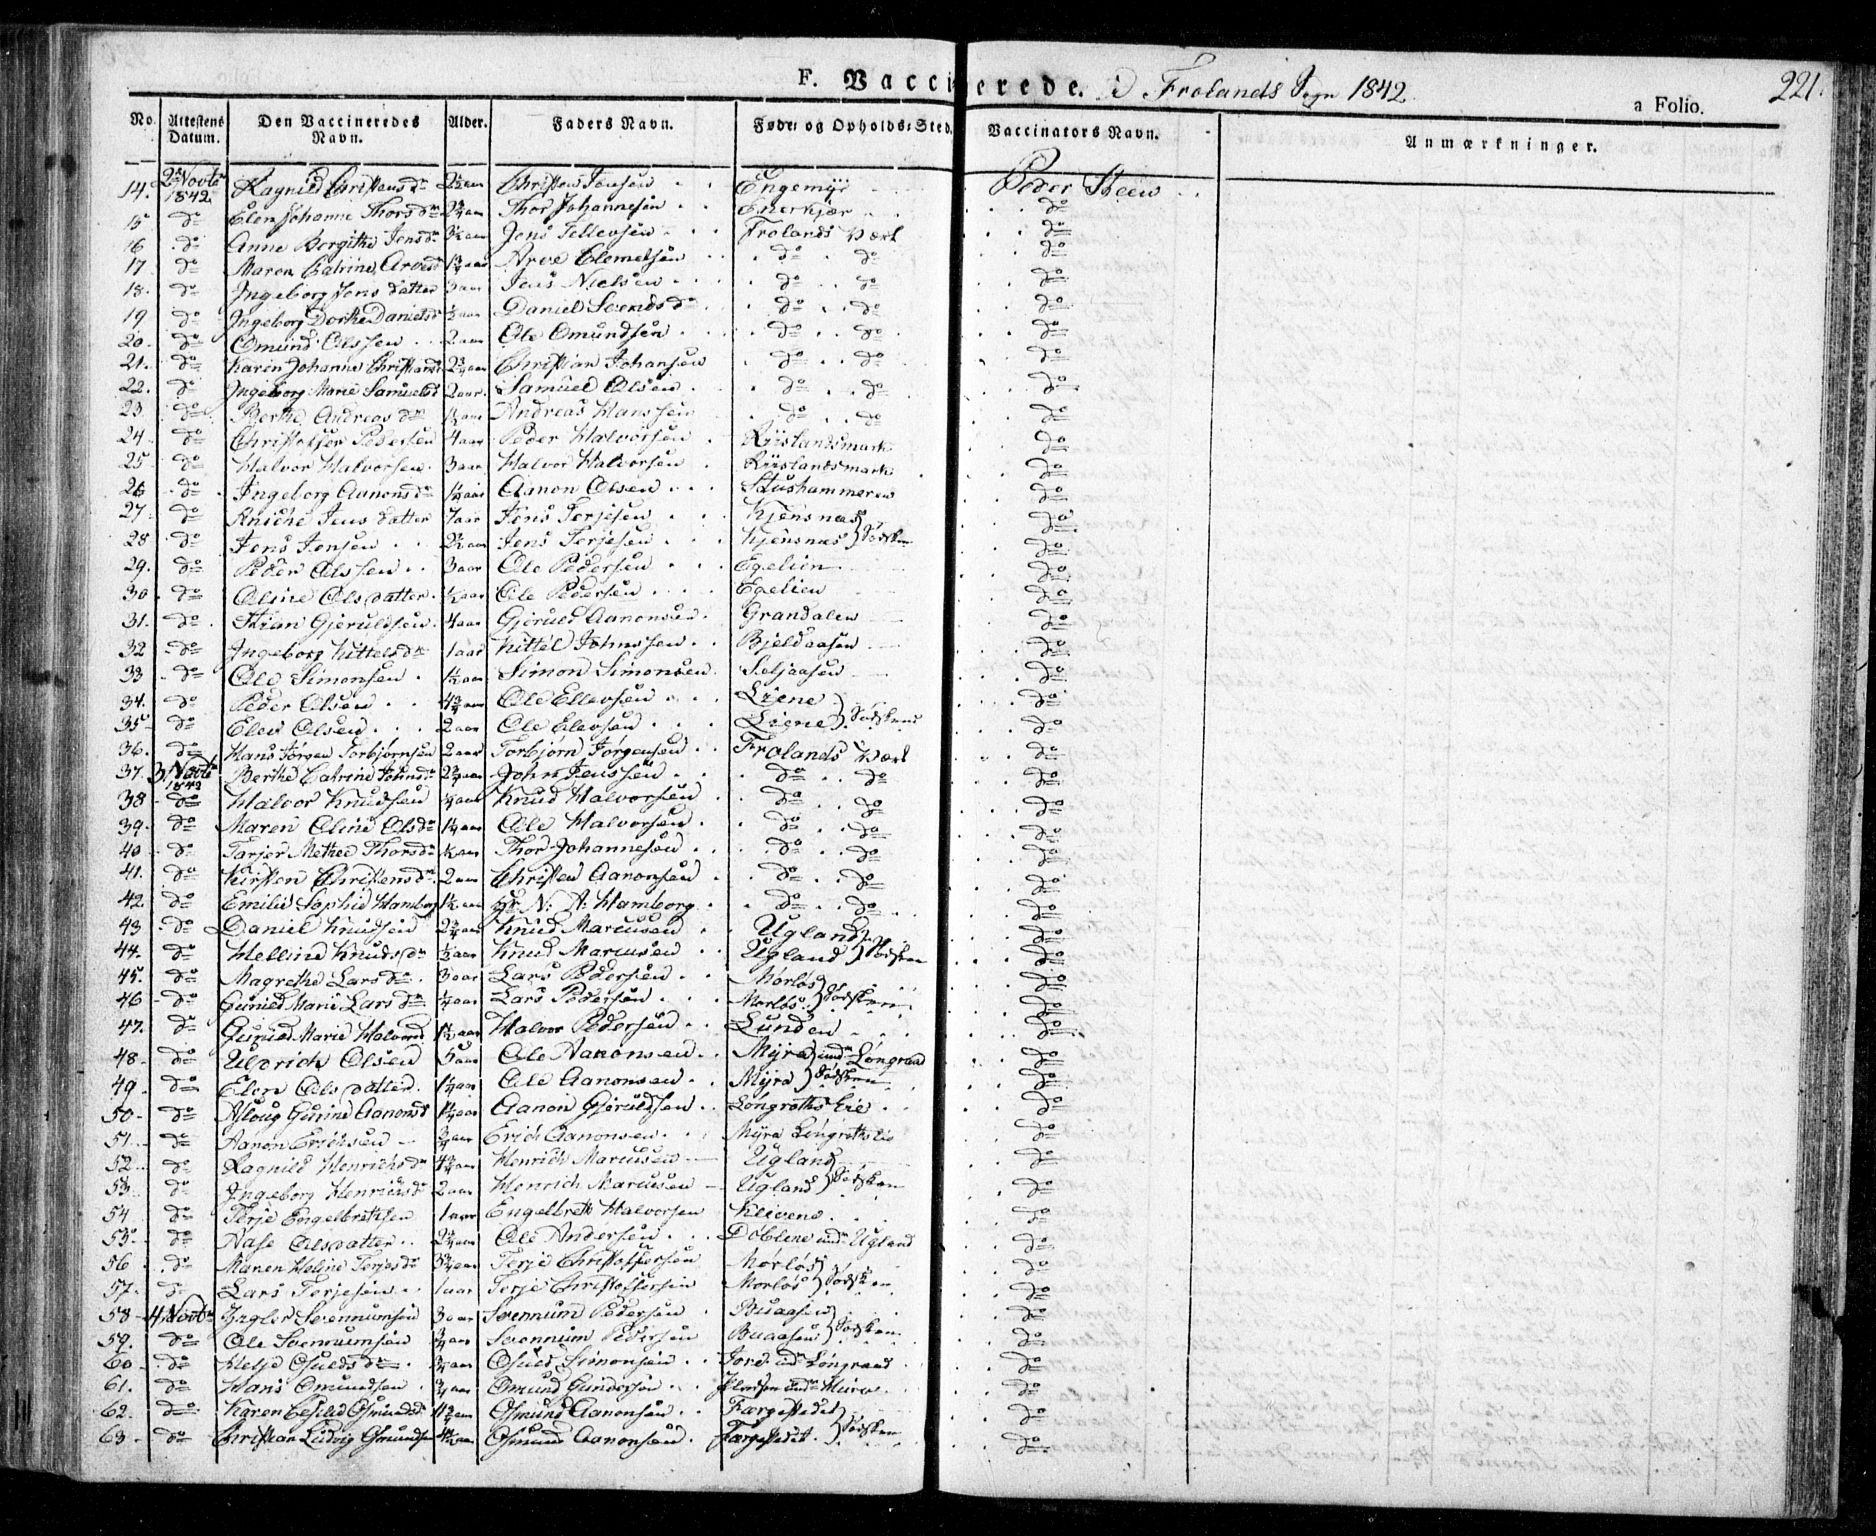 F. Vaccinerede. i Frolands Sogn 1842
221.
a Folio.
No. Attestens Datum. Den Vaccineredes Navn. Alder. Faders Navn. Føde- og Opholds-Sted. Vaccinators Navn. Anmærkninger.
14. 2 Novbr 1842 Ragnild Christensdr Christen Jensen Engemyr Peder Steen
15 do Elen Johanne Thorsdr 2¾ aar Thor Johannesen Enerkjær do
16 do Anne Borgithe Jensdr 3½ aar Jens Tellevsen Frolands Værk do
17 do Maren Catrine Arvesdr 1¾ aar Arve Clemetsen do do do
18. do Ingeborg Jens datter 3 aar Jens Nielsen do do do
19 do Ingeborg Dorthe Danielsd ½ aar Daniel Svends do do do
20. do Omund Olssen 2 aar Ole Omundsen do do do
21. do Karen Johanne Christiansd 2¾ aar Christian Johansen do do do
22. do Ingeborg Marie Samuelsd 2 aar Samuel Olsen do do do
23 do Berthe Andreas dr 1½ aar Andreas Hanssen do do do
24 do Christopher Pedersen 4 aar Peder Halvorsen Riislandsmark do
25 do Halvor Halvorsen 3 aar Halvor Halvorsen Riislandsmark do
26 do Ingeborg Aanonsdr 1½ aar Aanon Olsen Stushammeren do
27 do Aniche Jens datter 7 aar Jens Terjesen Kjensnæs do
28 do Jens Jensen 2½ aar Jens Terjesen Kjensnæs } Sødsken do
29. do Peder Olssen 3 aar Ole Pedersen Egelien do
30. do Oline Ols datter ½ aar Ole Pedersen Egelien do
31. do Stian Gjeruldsen 4 aar Gjeruld Aanonsen Grandalen do
32 do Ingeborg Kittelsdr 1 aar Kittel Johnssen Bjeldaasen do
33 do Ole Simonsen 1½ aar Simon Simonsen Seljaasen do
34. do Peder Olsen 4¾ aar Ole Ellevsen Liene do
35 do Elev Olsen 2 aar Ole Elevsen Liene } Sødskend do
36. do Hans Jørgen Torbjørnsen 2 aar Torbjørn Jørgensen Frolands Værk do
37. 3 Novbr 1842 Berthe Catrine Johnsdr 2¾ aar John Jenssen do do do
38 do Halvor Knudsen ¼ aar Knud Halvorsen do do do
39. do Maren Oline Olsdr 1¼ aar Ole Halvorsen do do do
40 do Tarjer Methee Thorsdr ½ aar Thor Johannesen do do do
41. do Kirsten Christensdr 2 aar Christen Aanonsen do do do
42 do Emilie Sophie Hamborg 1½ aar Hr N: A: Hamborg do do do
43 do Daniel Knudsen 2¾ aar Knud Marcusen Ugland do
44. do Helline Knudsdr ½ aar Knud Marcusen Ugland } Sødsken do
45. do Magrethe Larsdr 3 aar Lars Pedersen Morløs do
46 do Gunild Marie Larsdr ¼ aar Lars Pedersen Morløs } Sødsken do
47. do Gunild Marie Halvorsd 1½ aar Halvor Pedersen Lunden do
48 do Uldrich Olsen 5 aar Ole Aanonsen Myra undr Løngraad do
49. do Elen Olsdatter 1¼ aar Ole Aanonsen Myra } Sødsken do
50 do Asloug Gurine Aanonsd 1¼ aar Aanon Gjeruldsen Løngroths Eie do
51. do Aanon Erichsen ¾ aar Erich Aanonsen Myra Løngroths eie do
52 do Ragnild Henrichsdr 4¾ aar Henrich Marcusen Ugland do
53. do Ingeborg Henrichsdr 2 aar Henrich Marcusen Ugland } Sødsken do
54 do Terje Engelbrektsen 1 aar Engelbrekt Halvorsen Klivene do
55. do Aase Olsdatter 2¼ aar Ole Andersen Døblene undr Ugland do
56 do Maren Helene Terjesdr 3¾ aar Terje Christophersen Morløs do
57. do Lars Terjesen 1 aar Terje Christophersen Morløs } Sødsken do
58 4 Novbr Svennumsen 3 aar Svennum Pedersen Buaasen do
59. do Ole Svennumsen ¾ aar Svennum Pedersen Buaasen } Sødsken do
60 do Helje Osuldsdr ¾ aar Osuld Simonsen Løngraad do
61. do Hans Omundsen ¾ aar Omund Gundersen undr do
62. do Karen Osmundsdr Osmund Aanonsen Færgestedet do
63 do Christian Ludvig Osmundsen 4½ aar Osmund Aanonsen Færgestedet } Sødsken do